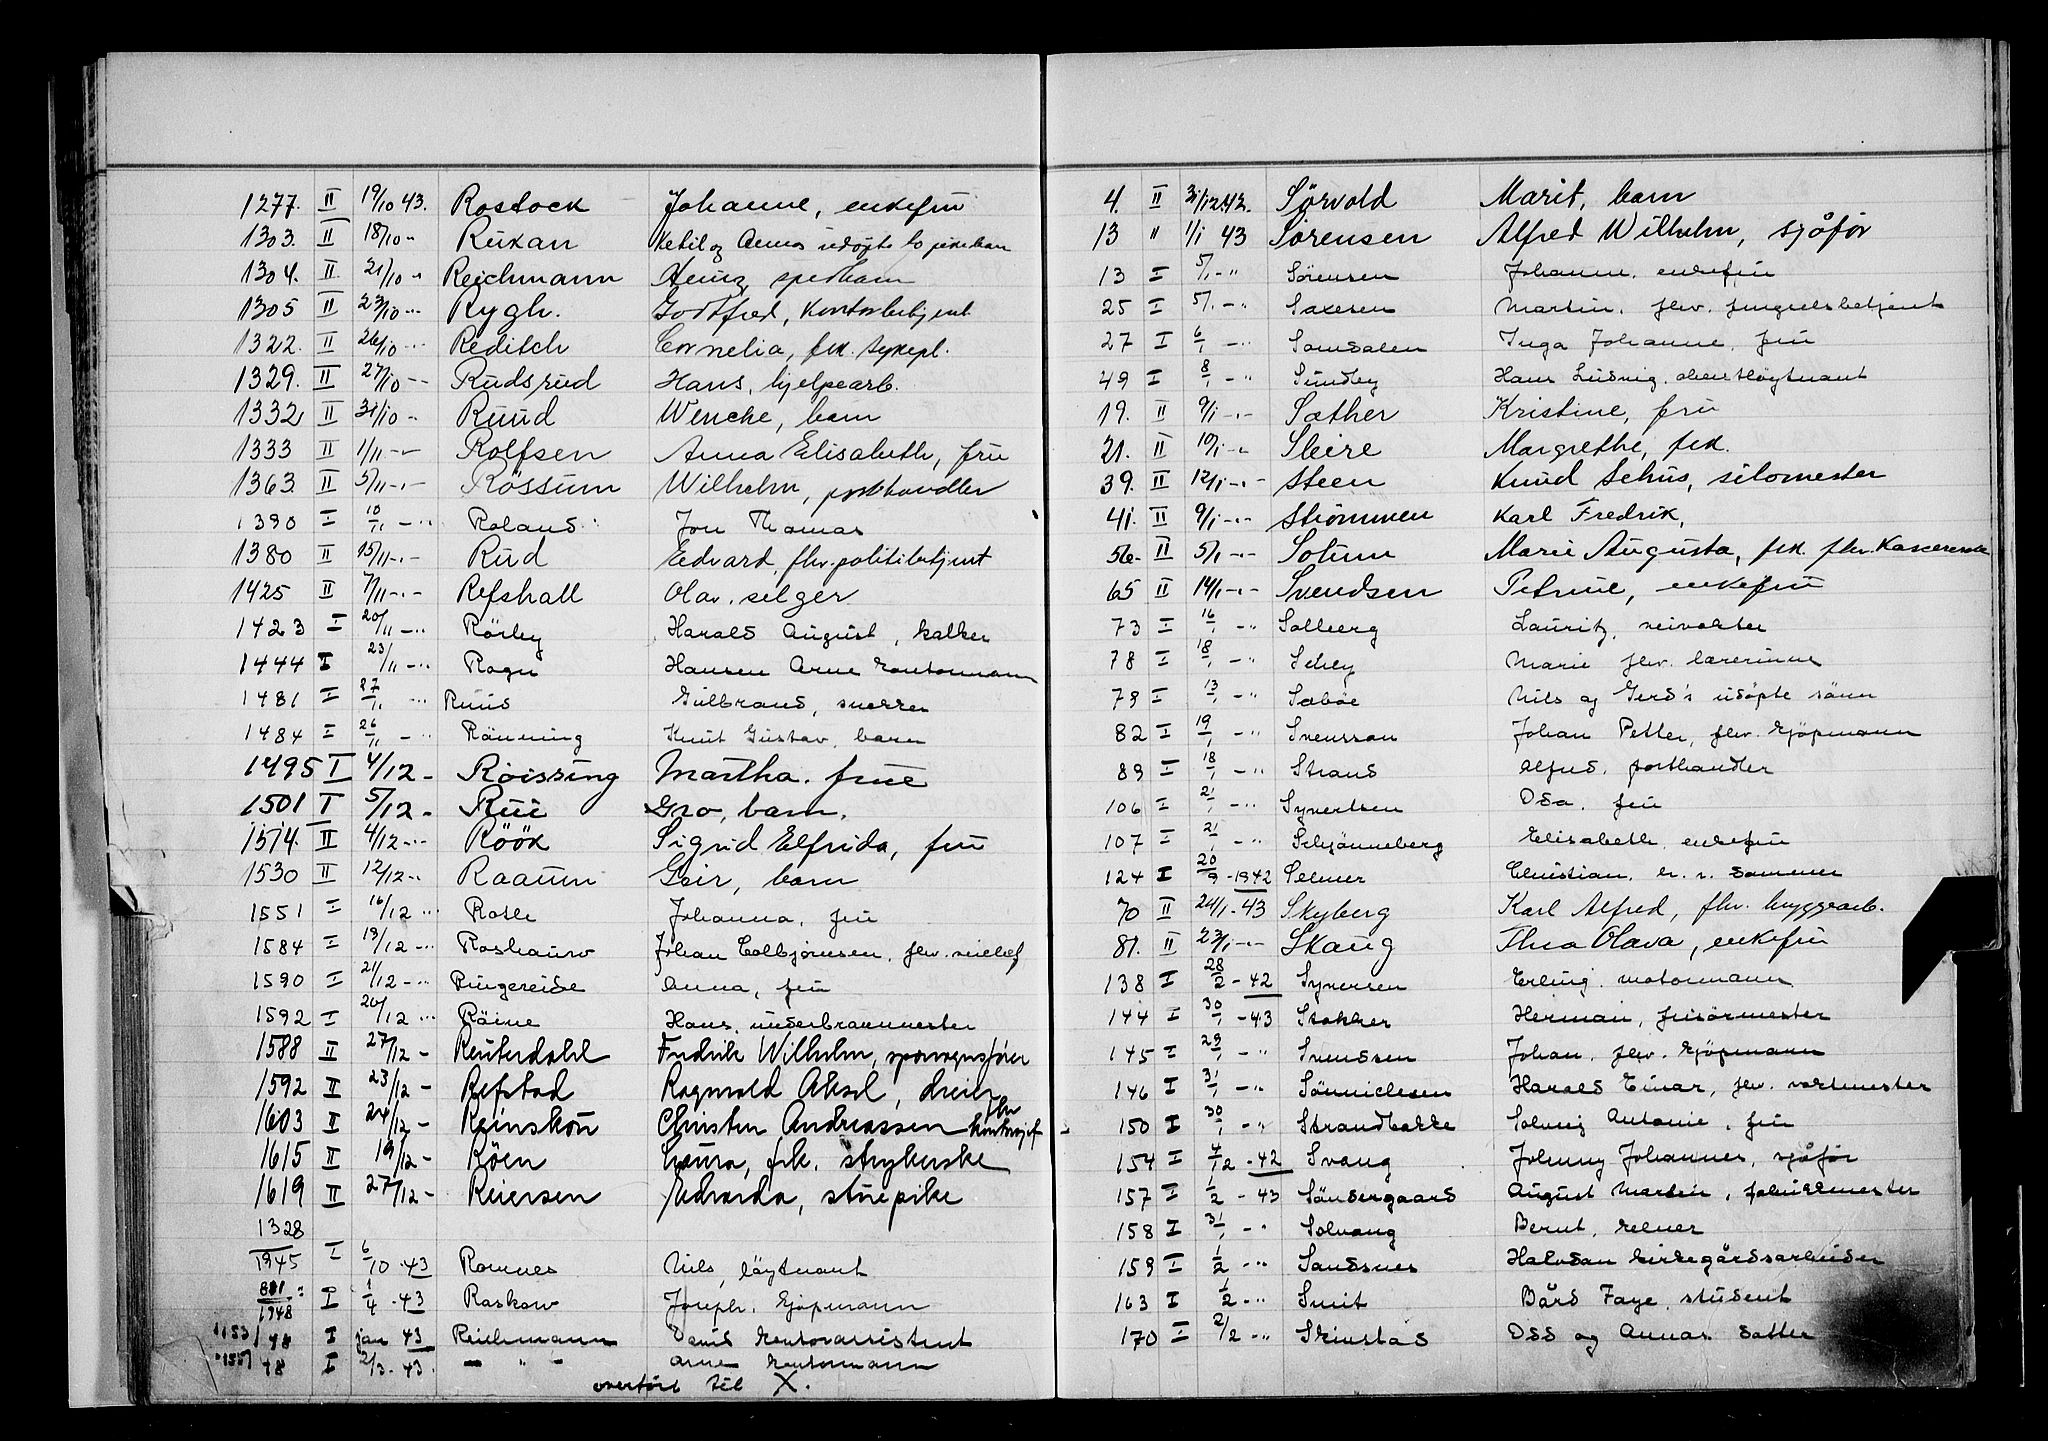 1277. II 19/10 43. Rostock Johanne, enkefru
1303. II 18/10 " Ruxan Ketil og Annas udøpte
1304. II 21/10 " Reichmann Heinz
1305 II 23/10 -"- Rygh. Godtfred, Kontorbetjent
1322. II 26/10 -"- Reditch Cornelia, frk. sykepl.
1329. II 27/10 -- Rudsrud Hans, hjelpearb.
1332 II 31/10 " Ruud Wenche, barn
1333 II 1/11 -"- Rolfsen Anna Elisabeth, fru
1363. II 5/11 -"- Røssum Wilhelm, posthandler
1390 I 10/11 -"- Roland Jon Thomas
1380 II 15/11 -"- Rud Edvard, fhv. politibetjent
1425 II 7/11 -"- Refshall Olav. selger
1423 I 20/11 -"- Rörby Harald August, kalker
1444 I 23/11 -"- Rogn Hansen Arne kontormann
1481 I 27/11 -"- Ruud Gulbrand, snekker
1484 I 26/11 -"- Rönning Knut Gustav, barn
1495 I 4/12 - Röissing Martha. frue
1501 I 5/12 - Rui Gro, barn.
1514. II 4/12 -"- Röök Sigrid Elfrida, fru
1530 II 12/12 -"- Raaum Geir, barn
1551 I 16/12 -"- Rolle Johanna, fru
1584 I 19/12 -"- Roshauw Johan Colbjørnsen, fhv.
1590 I 21/12 -"- Ringereide Anna, fru
1592 I 20/12 -"- Röine Hans, underbrannmester
1588 II 27/12 - Reuterdahl Fredrik Wilhelm, sporvognsfører
1592 II 23/12 - Refstad Ragnvald Aksel, dreier
1603 II 24/12 - Reinskou Christen Andreassen fhv
1615 II 19/12 - Röen Laura, frk. strykerske
1619 II 27/12 - Reiersen Edvarda, stuepike
1328
1945 I 6/10 - 43 Romnes Nils, löytnant
881 :
1948 I 1/4 - 43 Roskow Joseph, kjøpmann
1153 / 48 I jan 43 Reichmann kontorassistent
1557 48 I 2/3 - 43. - " - Arne kontormann
overført til X.
4. II 31/12.42. Sörvold Marit, barn
13 " 1/1 43 Sörensen Alfred Wilhelm, sjåför
13 I 5/1 - " Sörensen Johanne, enkefru
25 I 5/1 - " Saxesen Martin, fhv. fengselsbetjent
27 I 6/1 - " Somdalen Inga Johanne, fru
49 I 8/1 - " Sundby Hans Ludvig, oberstløytnant
19. II 9/1 -"- Sæther Kristine, fru
21. II 10/1 -"- Sleire Margrethe, frk.
39. II 12/1 -"- Steen Knud Schus, silomester
41. II 9/1 -"- Strömmen Karl Fredrik,
56. II 5/1 -"- Solum Marie Augusta, frk. fhv.
65 II 14/1 -"- Svendsen Petrine, enkefru
73 I 16/1 - " Solberg Lauritz, veivokter
78 I 18/1 - " Schey Marie fhv. lærerinne
79 I 13/1 - " Sæböe Nils og Gerd's udöpte sönn
82 I 19/1 - " Svensson Johan Petter, fhv. kjöpmann
89 I 18/1 - " Strand Alfred, posthandler
106 I 21/1 - " Syvertsen Oda, fru
107 I 21/1 - " Schjönneberg Elisabeth, enkefru
124 I 20/9 - 1942 Selmer Christian, h. r. dommer
70 II 24/1 - 43 Skyberg Karl Alfred, fhv. bryggearb.
81. II 23/1 -"- Skaug Thea Olava, enkefru
138 I 28/2 - 42 Syversen Erling, motormann
144 I 30/1 - 43 Stokker Herman, frisörmester
145 I 29/1 - " Svendsen Johan, fhv. kjöpmann
146 I 31/1 - " Sönnichsen Harald Einar, fhv. vaktmester
150 I 30/1 - " Strandbakke Solveig Antonie, fru
154 I 4/12 - 42 Svang Johnny Johannes, sjåför
157 I 1/2 - 43 Söndergaard August Martin, fabrikkmester
158 I 31/1 - " Solvang Bernt, kelner
159 I 1/2 - " Sandsnes Halvdan kirkegårdsarbeider
163 I 1/2 - " Smit Bård Faye, student
170 I 2/2 - " Skinstad Odd og Annas datter